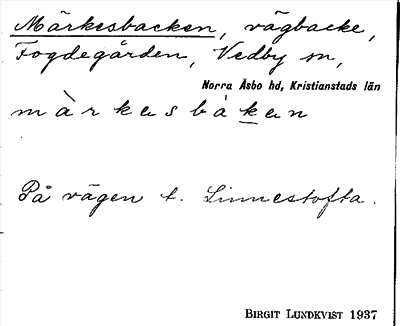 Märkesbacken, vägbacke,
Fogdegården, Vedby sn,
Norra Åsbo hd, Kristianstads län
màrkɐsbákɐn
På vägen t. Linnestofta.
BIRGIT LUNDKVIST 1937